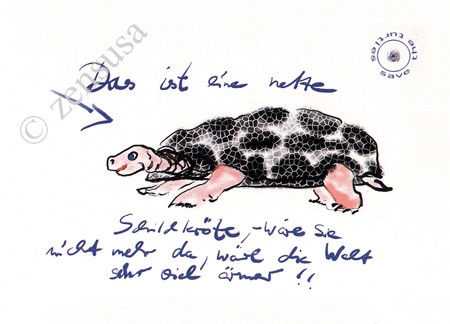 Das ist eine nette
Schildkröte, - wäre sie
nicht mehr da, wäre die Welt
sehr viel ärmer !!
save the turtles
© zensusa